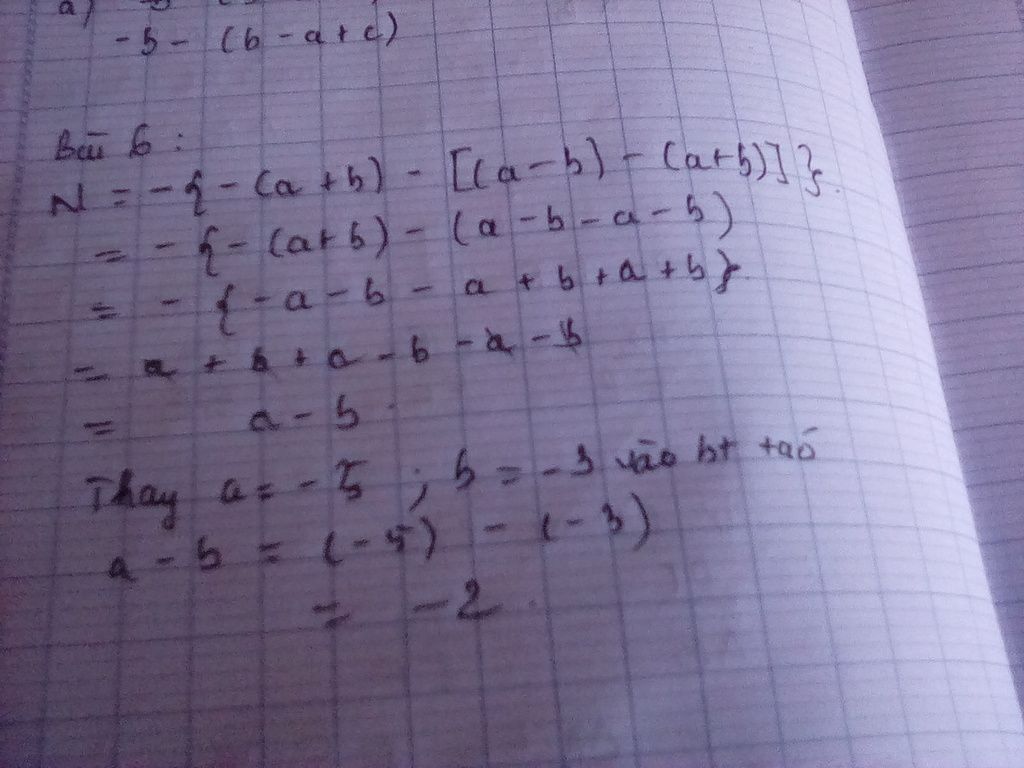 a)
-b - (b - a + c)
Bài 6 :
N = - { - (a + b) - [(a - b) - (a + b)] }.
= - { - (a + b) - (a - b - a - b)
= - { - a - b - a + b + a + b }
= a + b + a - b - a - b
= a - b
Thay a = - 5 ; b = - 3 vào bt taó
a - b = (- 5) - (- 3)
= - 2